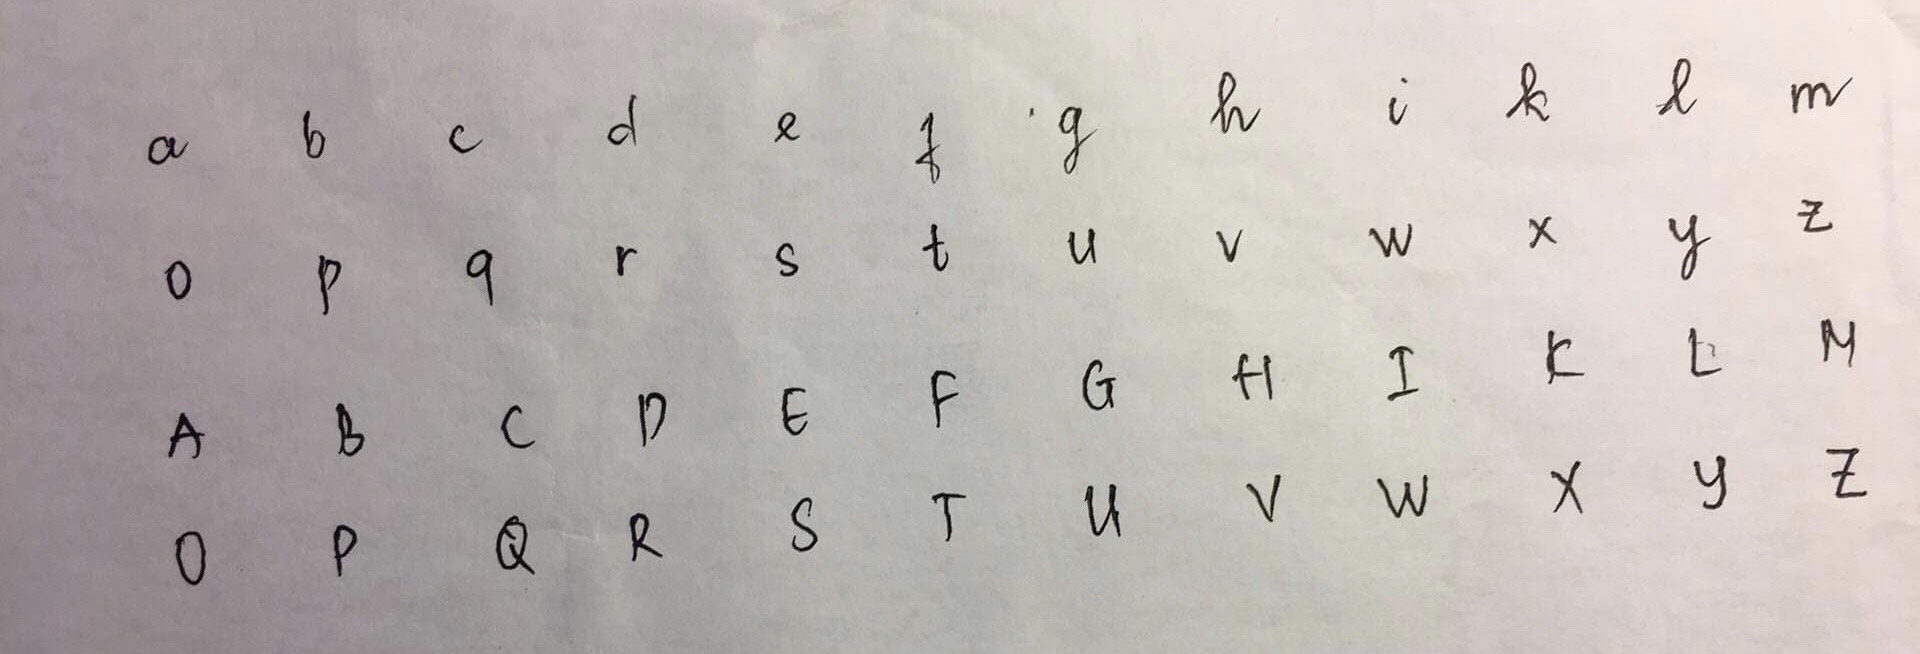 a b c d e f g h i k l m
o p q r s t u v w x y z
A B C D E F G H I K L M
O P Q R S T U V W X Y Z